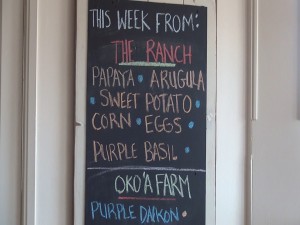 THIS WEEK FROM:
THE RANCH
PAPAYA • ARUGULA
• SWEET POTATO •
CORN • EGGS •
PURPLE BASIL •
OKO'A FARM
PURPLE DAIKON •